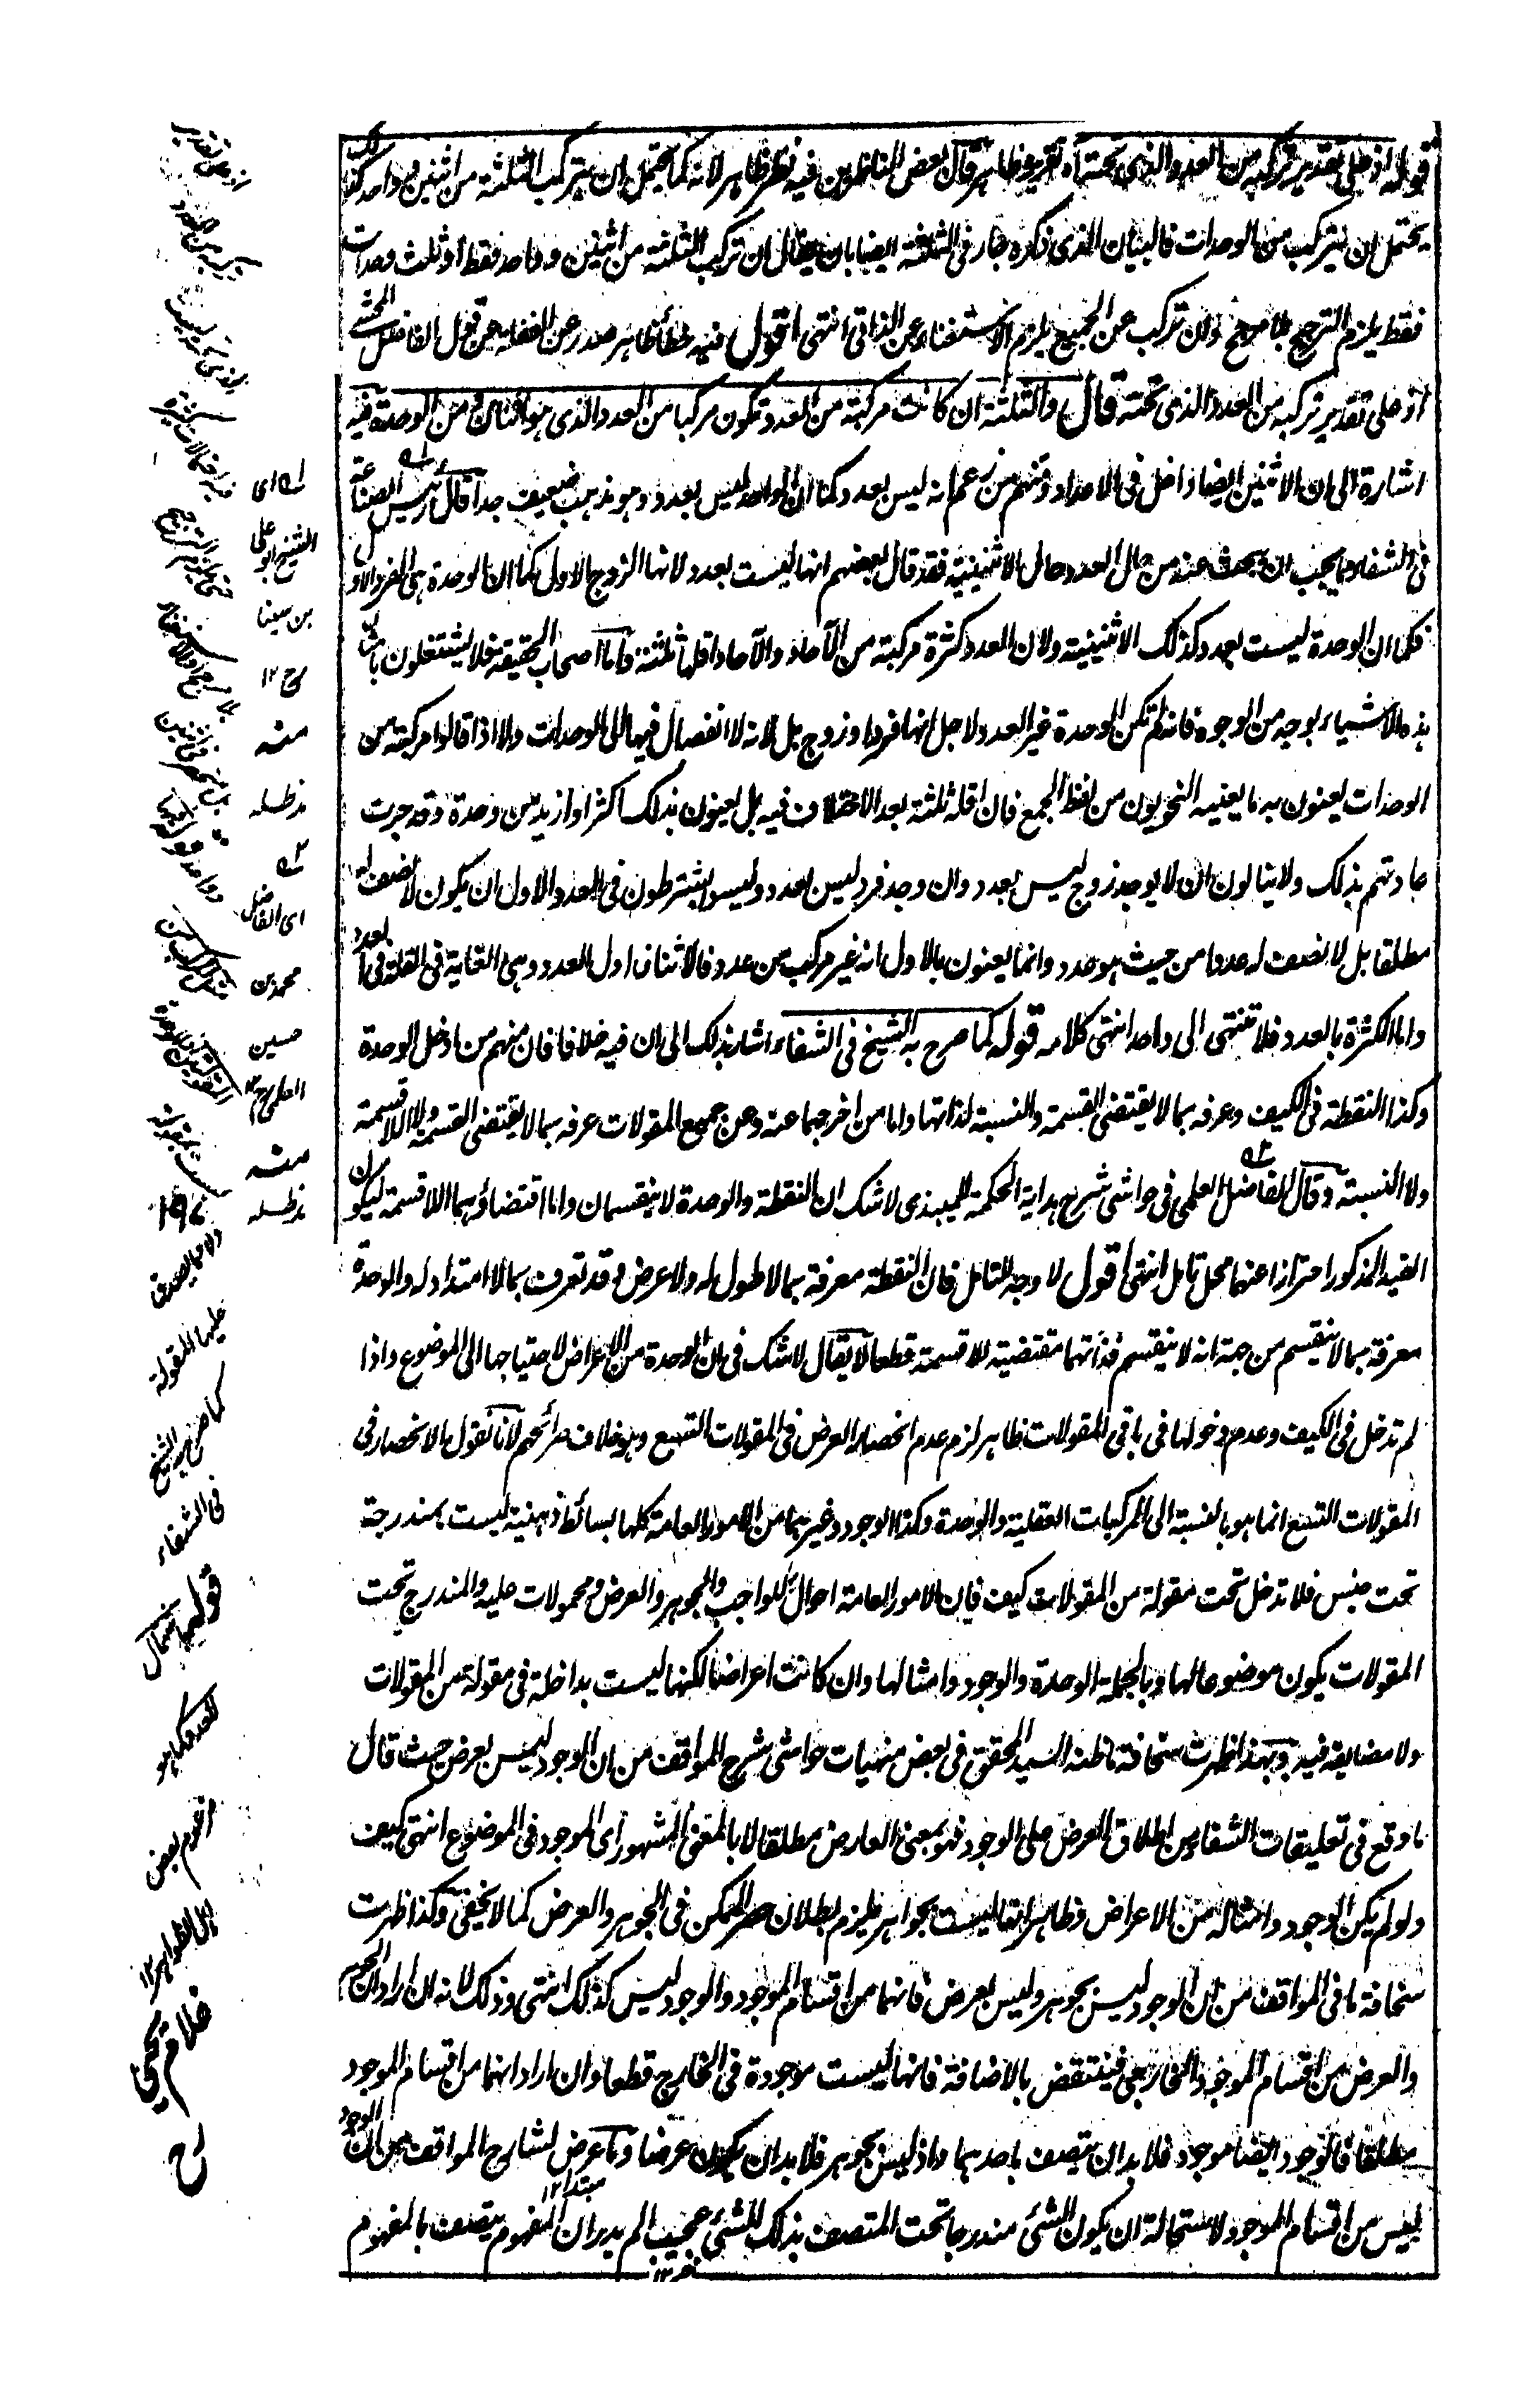 قوله اذ على تقدير تركبه من العدد والذى تحته آه تقريره ظاهر قال بعض الناظرين فيه نظر ظاهر لانه كما يحتمل ان يتركب الثلثة من اثنين وواحد كذلك
يحتمل ان يتركب من الوحدات فالبيان الذى ذكره جار فى الثلثة ايضا بان يقال ان تركب الثلثة من اثنين وواحد فقط او ثلث وحدات
فقط يلزم الترجيح بلا مرجح وان تركب عن الجميع يلزم الاستغناء عن الذاتى انتهى اقول فيه خطأ ظاهر صدر عن الغفلة عن قول الفاضل المحشى
اذ على تقدير تركبه من العدد الذى تحته قال والثلثة ان كانت مركبة من العدد تكون مركبا من العدد والذى هو اثنان من الوحدة فيه
اشارة الى ان الاثنين ايضا داخل فى الاعداد ومنهم من زعم انه ليس بعدد كما ان الواحد ليس بعدد وهو مذهب ضعيف جدا قال رئيس الصناعة
فى الشفاء مما يجب ان يبحث عنه من حال العدد حال الاثنينية فقد قال بعضهم انها ليست بعدد لانها الزوج الاول كما ان الوحدة هى الفرد الاول
فكما ان الوحدة ليست بعدد كذلك الاثنينية ولان العدد كثرة مركبة من الآحاد والآحاد اقلها ثلثة واما اصحاب الحقيقة فلا يشتغلون بامثال
هذه الاشياء بوجه من الوجوه فانه لم تكن الوحدة غير العدد لاجل انها فرد او زوج بل لانه لا انفصال فيها الى الوحدات ولا اذا قالوا مركبة من
الوحدات يعنون به ما يعنيه النحويون من لفظ الجمع فان اقله ثلثة بعد الاختلاف فيه بل يعنون بذلك اكثر او ازيد من وحدة وقد جرت
عادتهم بذلك ولا يبالون ان لا يوجد زوج ليس بعدد وان وجد فرد ليس بعدد وليس يشترطون فى العدد الاول ان يكون لا نصف له
مطلقا بل لا نصف له عددا من حيث هو عدد وانما يعنون بالاول انه غير مركب من عدد فالاثنان اول العدد وهى الغاية فى القلة فى العدد
واما الكثرة بالعدد فلا تنتهى الى واحد انتهى كلامه قوله كما صرح به الشيخ فى الشفاء اشار بذلك الى ان فيه خلافا فان منهم من ادخل الوحدة
وكذا النقطة فى الكيف وعرفه بما لا يقتضى القسمة والنسبة لذاتها واما من اخرجهما عنه وعن جميع المقولات عرفه بما لا يقتضى القسمة واللاقسمة
ولا النسبة وقال الفاضل العلمى فى حواشى شرح هداية الحكمة للميبذى لا شك ان النقطة والوحدة لا ينقسمان واما اقتضاؤهما اللاقسمة ليكون
القيد المذكور احترازا عنهما محل تامل انتهى اقول لا وجه للتامل فان النقطة معرفة بما لا طول له ولا عرض وقد تعرف بما لا امتداد له والوحدة
معرفة بما لا ينقسم من جهة انه لا ينقسم فذاتهما مقتضية للاقسمة قطعا لا يقال لا شك فى ان الوحدة من الاعراض لاحتياجها الى الموضوع واذا
لم تدخل فى الكيف وعدم دخولها فى باقى المقولات ظاهر لزم عدم انحصار العرض فى المقولات التسع وهو خلاف صرائحهم لانا نقول الانحصار فى
المقولات التسع انما هو بالنسبة الى المركبات العقلية والوحدة وكذا الوجود وغيرهما من الامور العامة كلها بسائط ذهنية ليست بمندرجة
تحت جنس فلا تدخل تحت مقولة من المقولات كيف فان الامور العامة احوال للواجب والجوهر والعرض ومحمولات عليه والمندرج تحت
المقولات يكون موضوعا لها وبالجملة الوحدة والوجود وامثالها وان كانت اعراضا لكنها ليست بداخلة فى مقولة من المقولات
ولا مضايقة فيه وبهذا ظهرت سخافة ما ظنه السيد المحقق فى بعض منهيات حواشى شرح المواقف من ان الوجود ليس بعرض حيث قال
ما وقع فى تعليقات الشفاء من اطلاق العرض على الوجود فهو بمعنى العارض مطلقا لا بالمعنى المشهور اى الموجود فى الموضوع انتهى كيف
ولو لم يكن الوجود وامثاله من الاعراض وظاهر انها ليست بجواهر فيلزم بطلان حصر الممكن فى الجوهر والعرض كما لا يخفى وكذا ظهرت
سخافة ما فى المواقف من ان الوجود ليس بجوهر وليس بعرض فانهما من اقسام الموجود والوجود ليس كذلك انتهى وذلك لانه ان اراد ان الجوهر
والعرض من اقسام الموجود الخارجى فينتقض بالاضافة فانها ليست موجودة فى الخارج قطعا وان اراد انهما من اقسام الموجود
مطلقا فالوجود ايضا موجود فلا بد ان يتصف باحدهما واذ ليس بجوهر فلا بد ان يكون عرضا وما عرض لشارح المواقف من ان الوجود
مبتدا ١٢
ليس من اقسام الموجود لاستحالة ان يكون الشئ مندرجا تحت المتصف بذلك الشئ عجيب الم يدر ان المفهوم يتصف بالمفهوم
خبر ١٢
له اى
الشيخ ابو على
بن سينا
رح ١٢
منه
مدظله
له
اى الفاضل
محمد بن
حسين
العلمى رح ١٢
منه
مدظله
عليها المقولة
كما صرح به الشيخ
فى الشفاء
قوله
بعض
اهل الظواهر ١٢
غلام يحيى
رح